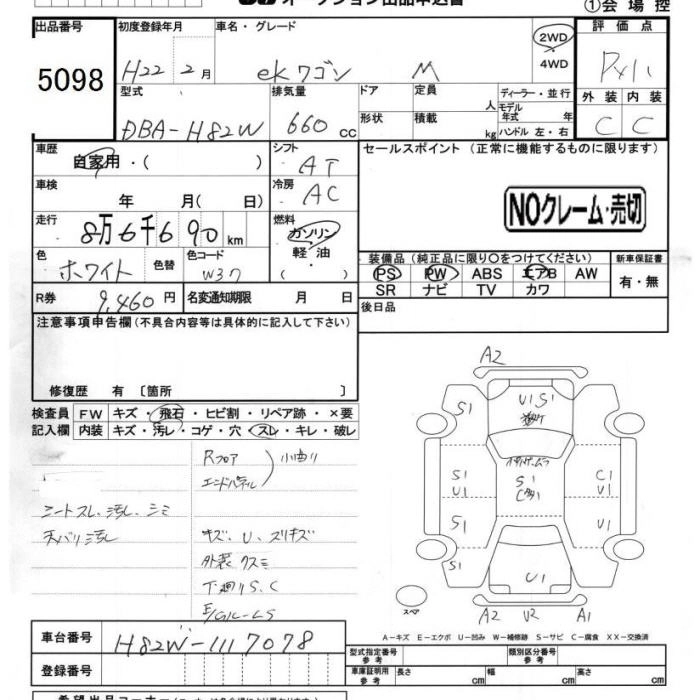 オークション出品申込書 ①会場控
出品番号
5098
初度登録年月 車名・グレード 2WD 4WD 評価点
H22 2月 ekワゴン M
型式 排気量 ドア 定員 人 ディーラー・並行 外装 内装
DBA-H82W 660cc 形状 積載 kg モデル年式 年式 ハンドル 左・右 C C
車歴 自家用・( ) シフト AT セールスポイント (正常に機能するものに限ります)
車検 年 月( 日) 冷房 AC
NOクレーム・売切
走行 8万6千690km 燃料 ガソリン 軽・油 ( )
装備品 (純正品に限り○をつけてください) 新車保証書
色 ホワイト 色替 色コード W37
PS PW ABS エアB AW 有・無
SR ナビ TV カワ
R券 9,460円 名変通知期限 月 日
後日品
注意事項申告欄(不具合内容等は具体的に記入して下さい)
修復歴 有 [箇所 ]
検査員 FW キズ・飛石・ヒビ割・リペア跡・×要
記入欄 内装 キズ・汚レ・コゲ・穴・スレ・キレ・破レ
Rフロア
エンドパネル
小曲り
シートスレ、汚レ、シミ
天バリ汚レ
キズ、U、スリキズ
外装クスミ
下廻りS、C
A2
S1
U1 S1
S1
S1
U1
S1
C1
U1
S1
S1
S1
U1
スペア
A2 U2 A1
A-キズ E-エクボ U-凹み W-補修跡 S-サビ C-腐食 XX-交換済
車台番号 H82W-1117078
登録番号
型式指定番号 参考 類別区分番号 参考
車庫証明用 参考 長さ cm 幅 cm 高さ cm